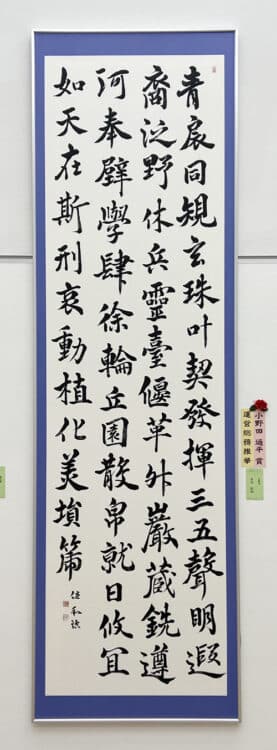 青扆同規玄珠叶契發揮三五聲明遐
裔泛野休兵靈臺偃革外巖蔵銑遵
河奉璧學肆徐輪丘園散帛就日攸宜
如天在斯刑哀動植化美塤篪
小野田 賞
運営総務推挙